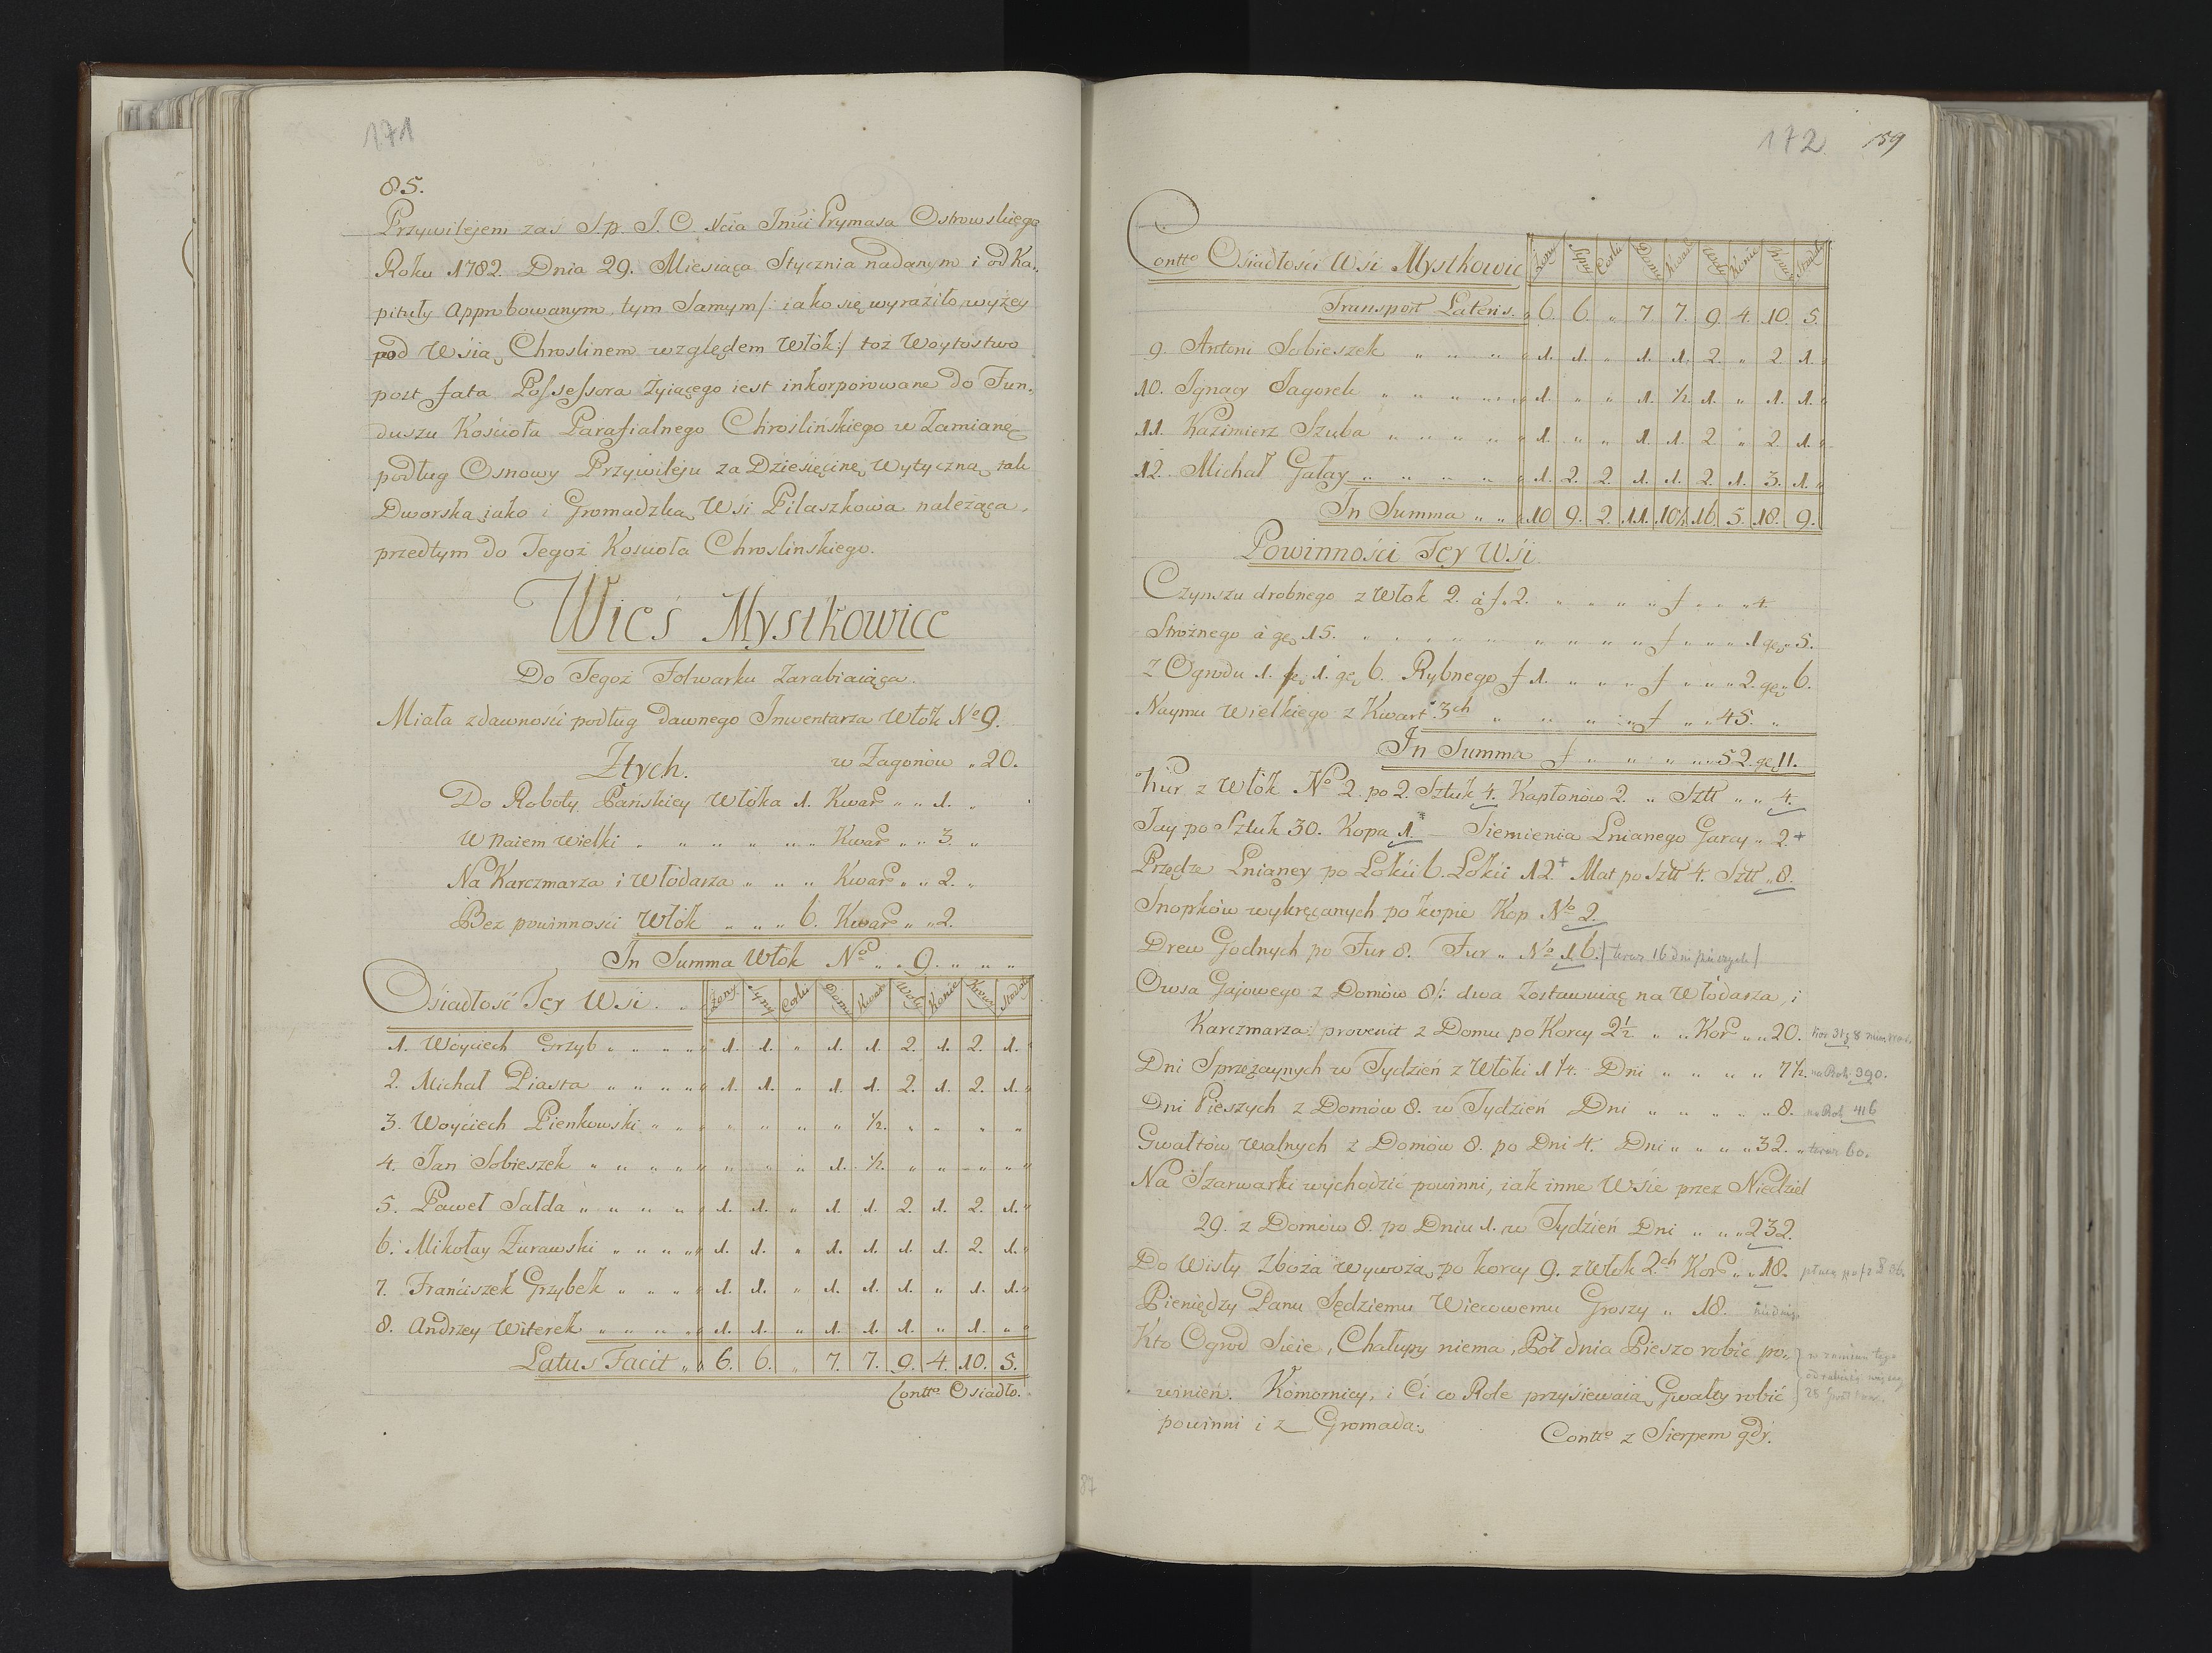 171
85.
Przywilejem zaś S.p. J. O. Xcia Jmći Prymasa Ostrowskiego
Roku 1782. Dnia 29. Miesiąca Stycznia nadanym i od Ka„
pituły Approbowanym, tym Samym /: iako się wyraziło wyżey
pod Wsią Chroslinem względem Włók :/ toż Woytostwo
post fata Possessora żyiącego iest inkorporowane do Fun„
duszu Kościoła Parafialnego Chroslińskiego w Zamianę
podług Osnowy Przywileju za Dziesięcinę Wytyczną tak
Dworską jako i Gromadzką Wsi Pilaszkowa należącą,
przedtym do Tegoż Kościoła Chroslinskiego.
Wieś Mystkowice
Do Tegoż Folwarku Zarabiaiąca.
Miała zdawności podług dawnego Inwentarza Włók No 9.
Ztych. w Zagonów „ 20.
Do Roboty Pańskiey Włóka 1. Kwart „ „ 1. „
W Naiem Wielki „ „ „ „ „ „ Kwart „ „ 3. „
Na Karczmarza i Włodarza „ „ „ Kwart „ „ 2. „
Bez powinnosci Włók „ „ „ 6. Kwart „ „ 2.
In Summa Włók No „ „ 9. „ „ „
Osiadłość Tey Wsi. Żony Syny Corki Domy Kwart Woły Konie Krowy Stodoły
1. Woyciech Grzyb „ „ „ „ 1. 1. „ 1. 1. 2. 1. 2. 1.
2. Michał Piasta „ „ „ „ 1. 1. „ 1. 1. 2. 1. 2. 1.
3. Woyciech Pienkowski „ „ „ „ „ „ ½. „ „ „ „
4. Jan Sobieszek „ „ „ „ „ „ „ 1. ½. „ „ „ „
5. Paweł Sałda „ „ „ „ 1. 1. „ 1. 1. 2. 1. 2. 1.
6. Mikołay Żurawski „ „ „ „ 1. 1. „ 1. 1. 1. 1. 2. 1.
7. Franciszek Grzybek „ „ „ 1. 1. „ 1. 1. 1. „ 1. 1.
8. Andrzey Witerek „ „ „ „ 1. 1. „ 1. 1. 1. „ 1. „
Latus Facit „ 6. 6. „ 7. 7. 9. 4. 10. 5.
Contto Osiadło.
172. 159
Contto Osiadłości Wsi Mystkowic Żony Syny Corki Domy Kwart Woły Konie Krowy Stodoły
Transport Lateris. „ 6. 6. „ 7. 7. 9. 4. 10. 5.
9. Antoni Sobieszek „ „ „ 1. 1. „ 1. 1. 2. „ 2. 1.
10. Ignacy Jagorek „ „ „ „ 1. „ „ 1. ½. 1. „ 1. 1.
11. Kazimierz Szuba „ „ „ „ 1. „ „ 1. 1. 2. „ 2. 1.
12. Michał Gałay „ „ „ „ 1. 2. 2. 1. 1. 2. 1. 3. 1.
In Summa „ „ 10 9. 2. 11. 10½ 16. 5. 18. 9.
Powinności Tey Wsi
Czynszu drobnego z Włók 2. à f. 2. „ „ „ „ f „ „ „ 4.
Stróżnego à gr. 15. „ „ „ „ „ „ „ „ f „ „ „ 1 gr. „ 5.
z Ogrodu 1. 1. gr. 6. Rybnego f 1. „ „ „ f „ „ „ 2. gr. „ 6.
Naymu Wielkiego z Kwart 3ch „ „ „ „ f „ „ 45. „
In Summa f „ „ „ „ 52. gr. 11.
Kur z Włók No 2. po 2. Sztuk 4. Kapłonów 2. „ Sztt „ „ 4.
Jay po Sztuk 30. Kopa 1. — Siemienia Lnianego Garcy „ 2. +
Przędze Lnianey po Łokci 6. Łokci 12 + Mat po Sztt 4. Sztt „ 8.
Snopków wykręcanych po kopie Kop No 2.
Drew Godnych po Fur 8. Fur „ No 16. / teraz 16 dni pieszych /
Owsa Gajowego z Domów 8 /: dwa zostawuiąc na Włódarza, i
Karczmarza: provenit z Domu po Korcy 2½ „ „ Kor „ „ 20.
Dni Sprzężaynych w Tydzień z Włóki 1 ¼. Dni „ „ „ „ 7½. na Rok 390.
Dni Pieszych z Domów 8. w Tydzień Dni „ „ „ „ „ 8. na Rok 416
Gwałtów walnych z Domów 8. po Dni 4. Dni „ „ „ „ 32. „ teraz 60.
Na Szarwarki wychodzić powinni, iak inne Wsie przez Niedziel
29. z Domów 8. po Dniu 1. w Tydzień Dni „ „ „ 232.
Do Wisły Zboża wywożą po korcy 9. z Włók 2ch Kor „ „ 18.
Pieniędzy Panu Sędziemu Wiecowemu Groszy „ 18.
Kto Ogrod Sieie, Chałupy niema, Pół dnia Pieszo robić po„
winień. Komornicy, i Ci co Role przysiewaią Gwałty robić
powinni i z Gromadą.
Contto z Sierpem gdy.
87